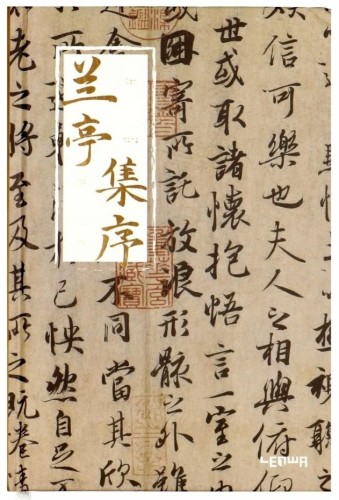 兰亭
集序
極視聽之
娛信可樂也夫人之相與俯仰
世或取諸懷抱悟言一室之內
或因寄所託放浪形骸之外雖
不同當其欣
於所己怏然自足不
老之將至及其所之既惓情
LENWA